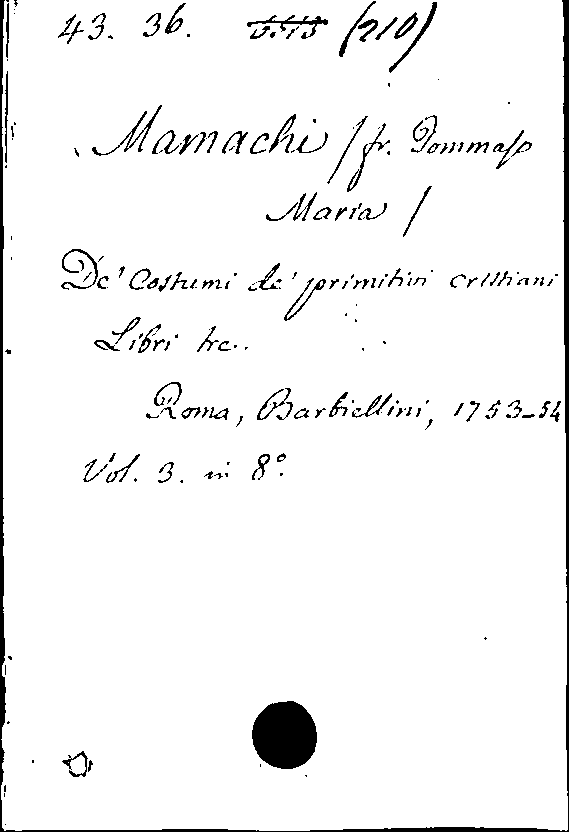 43. 36. (210)
Mamachi / fr. Tommaso
Maria /
De' Costumi de' primitivi cristiani
Libri tre..
Roma, Barbiellini, 1753-54
Vol. 3. in 8º.